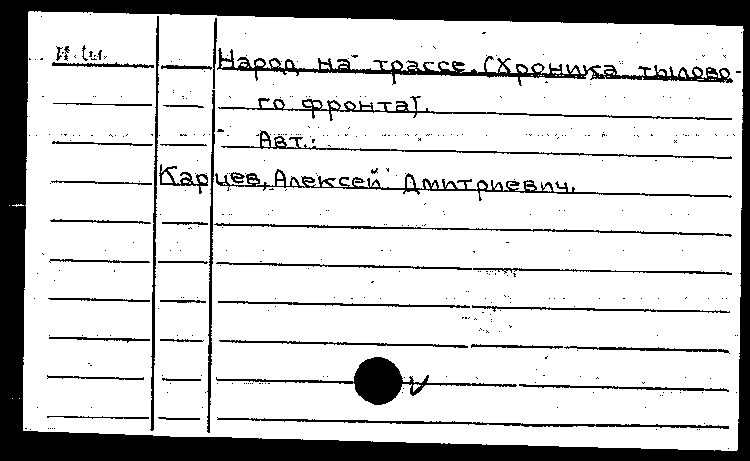 Народ на трассе. (Хроника тылово-
го фронта).
Авт.:
Карцев, Алексей Дмитриевич.